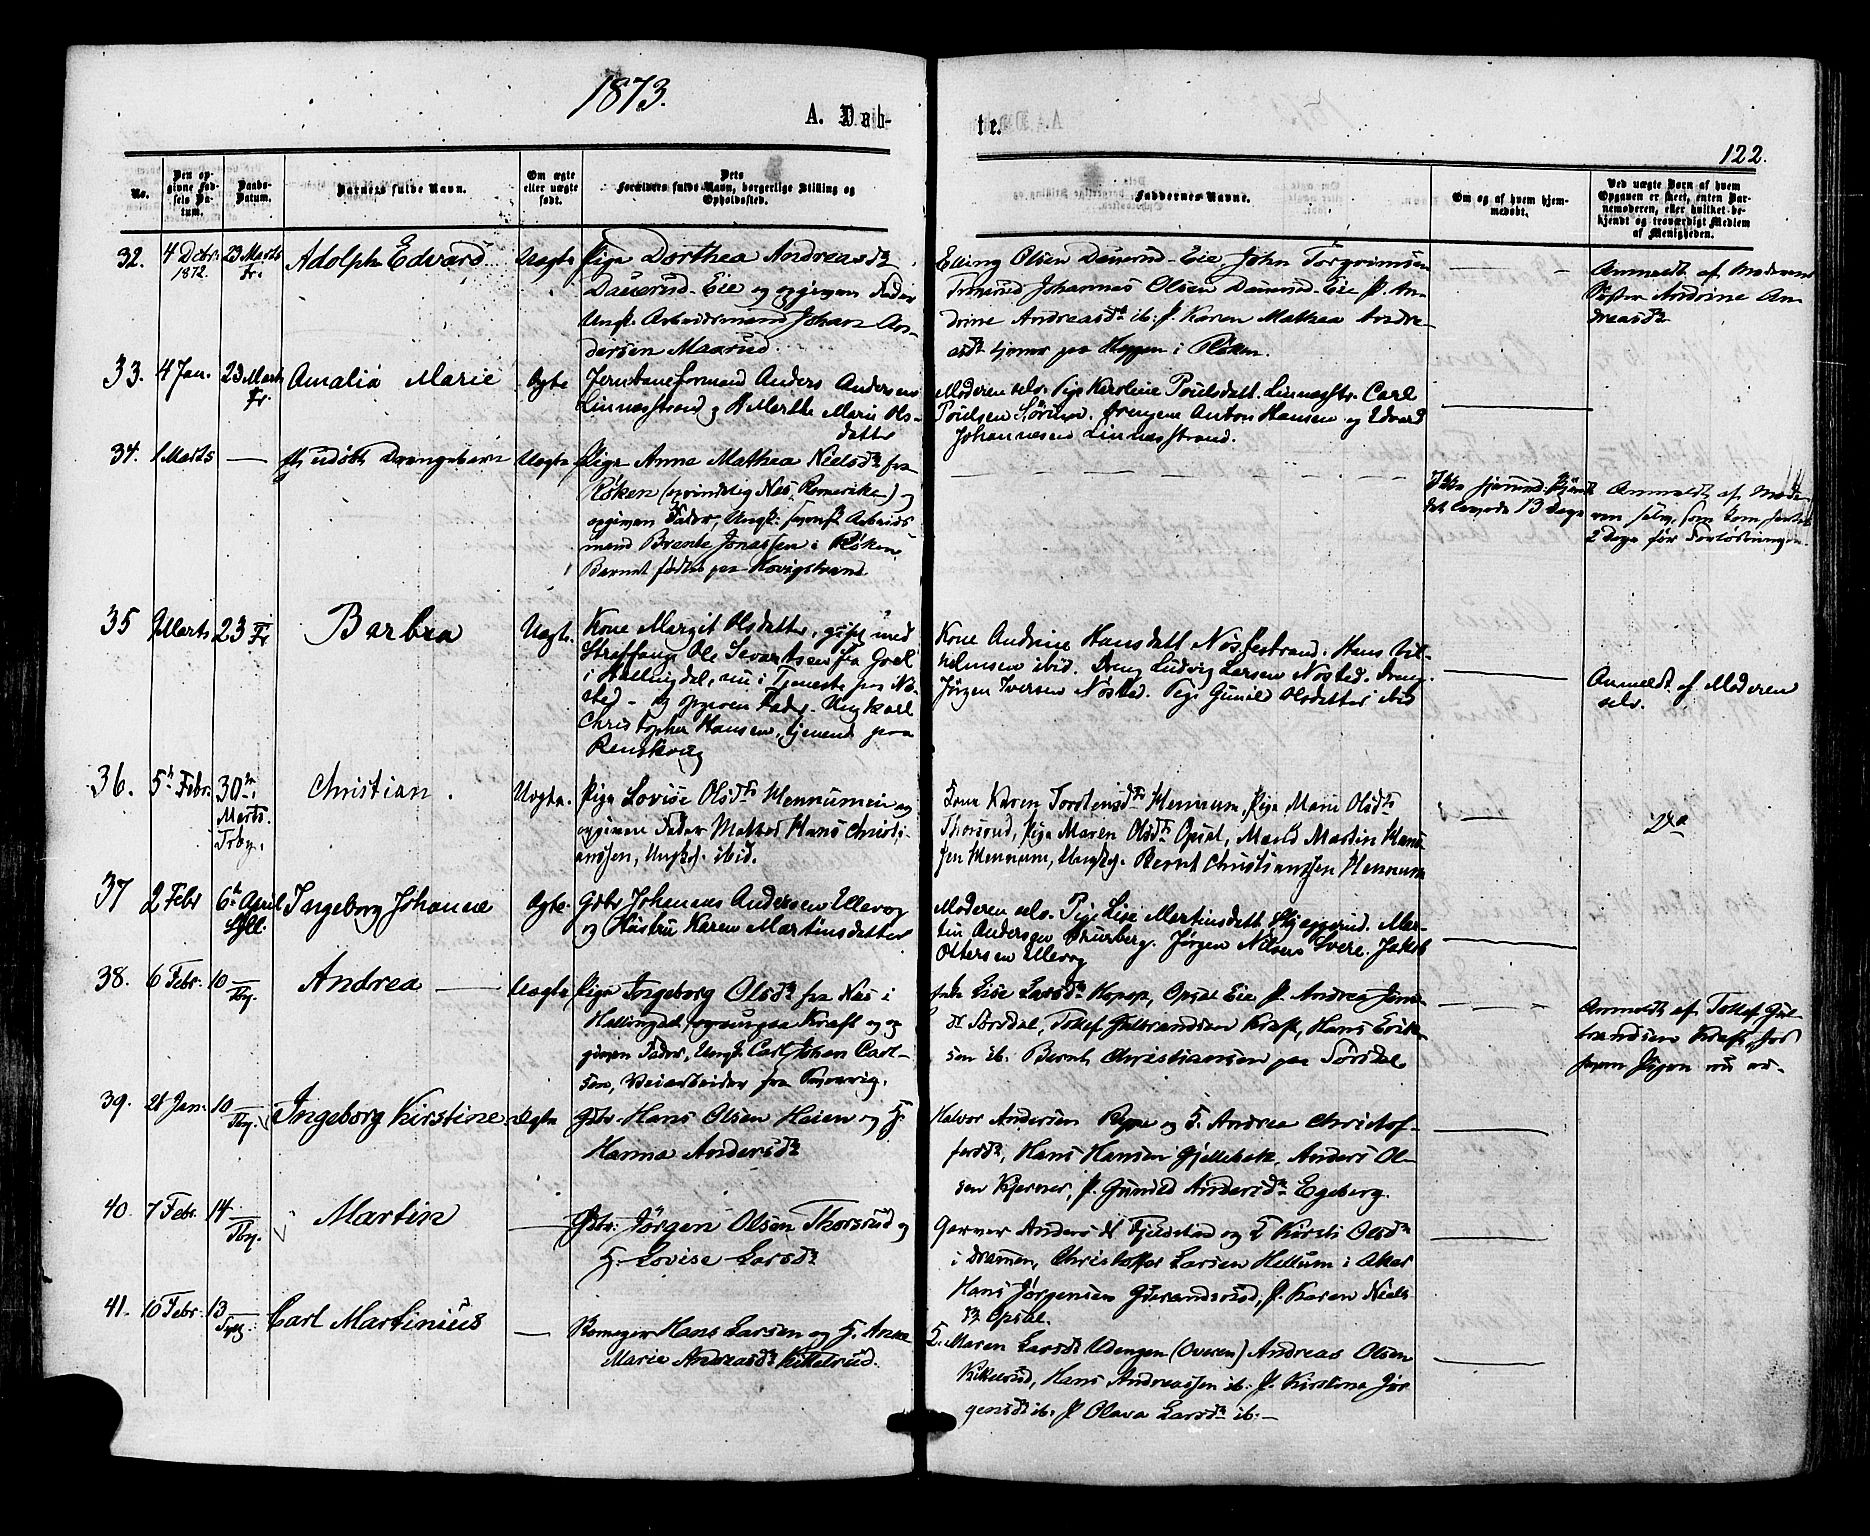 1873.
A. Dåb-
te.
122.
No.
Den op-
givne Fød-
sels Da-
tum.
Daabs-
Datum.
Barnets fulde Navn.
Om ægte
eller uægte
født.
Dets
Forældres fulde Navn, borgerlige Stilling og
Opholdssted.
Faddernes Navne.
Om og af hvem hjem-
medøbt.
Ved uægte Børn af hvem
Opgaven er skeet, enten Bar-
nemoderen, eller hvilket be-
kjendt og troværdigt Medlem
af Menigheden.
32. 4 Decbr. 1872. 23 Marts Fr. Adolph Edvard Uægte
Pige Dorthea Andreasdtr
Dauerud-Eie og opgiven Fader
Ungk. Arbeidsmand Johan An-
dersen Maarud.
Elling Olsen Dauerud-Eie John Torgrimsen
Johannes Olsen Dauerud-Eie P. An-
drine Andreasdtr ib: P. Karen Mathea Andre-
asdt tjener paa Heggen i Røken.
Anmeldt af Moderens
Søster Andrine An-
dreasdtr
33. 4 Jan. 23 Marts Fr. Amalia Marie Ægte
Jernbaneformand Anders Andersen
Linnæsstrand og H Marthe Marie Ols-
datter
Moderen selv. Pige Karoline Poulsdatt. Linnæsstr. Carl
Poulsen. Drengene Anton Hansen og Edvard
Johannesen Linnæsstrand.
34. 1 Marts — Et udøbt Drengebarn Uægte
Pige Anne Mathea Nielsdtr fra
Røken (oprindelig Næs, Romerike) og
opgiven Fader, Ungk: Arbeids
mand Brente Jonassen i Røken
Barnet født paa Hovigstrand
levede 13 Dage
Anmeldt af Mode-
ren selv, som kom
2 Dage før Forløsningen.
35 Marts 23 Fr Barbra Uægte
Kone Margit Olsdatter, gift med
Straffange Ole Sevartsen fra Goel
i Hallingdal, nu i Tjeneste paa Nø-
sted - og opgiven Fader. Ungkarl
Christopher Hansen, tjenende paa
Renskoug
Kone Andrine Hansdatt Nøstestrand. Hans Vil-
helmsen ibid. Dreng Ludvig Larsen Nøsted. Dreng
Jörgen Iversen Nøsted. Pige Gunil Olsdatter ibid
Anmeldt af Moderen
selv.
36. 5te Febr. 30te Marts. Trby. Christian. Uægte.
Pige Lovise Olsdtr Hennumeie og
opgiven Fader Matros Hans Christi-
anssen, Ungkl. ibid.
Kone Karen Torstensdtr Hennum, Pige Marie Olsdtr
Thorsrud, Pige Maren Olsdtr Opsal, Martin Han-
sen Hennum, Ungkl. Bernt Christianssen Hennum
Do
37 2 Febr 6te April Syll. Ingeborg Johanne Ægte.
Gbr Johannes Andersen Ullevog
og Hustru Karen Martinsdatter
Moderen selv. Pige Lise Martinsdatt Skjeggerud. Mar-
tin Andersen. Jørgen Nilsen Svere. Jakob
Ottersen Ullevog
38. 6 Febr. 10 — Tby. Andrea — Uægte
Pige Ingeborg Olsdtr fra Næs i
Hallingdal Kraft og op
given Fader, Ungk. Carl Johan Carl-
sen, Veiarbeider fra
Lise Larsdtr Kopop, Opsal Eie P. Andrea Jens-
dt Sørsdal, Tollef Gulbrandsen Kraft, Hans Erik-
sen ib. Bernt Christiansen paa Sørsdal
Anmeldt af Tollef Gul-
brandsen Kraft, hos
hvem Pigen nu er.
39. 21 Jan. 10 — Tby. Ingeborg Kirstine Ægte
Gbr. Hans Olsen Heien og H.
Hanna Andersdtr
Halvor Andersen Rype og H. Andrea Christof-
fersdtr, Hans Hansen Gjellebek, Anders Ol-
sen Kjerner, P. Gunild Andersdtr Egeberg.
40. 7 Febr. 14 — Tby. Martin —
Gbr. Jørgen Olsen Thorsrud og
H. Lovise Larsdtr
Garver Anders H Fjeldstad og H Kirsti Olsdtr
i Dramen, Christoffer Larsen Hellum i Aker
Hans Jørgensen, P. Karen Niels-
dtr Opsal.
41. 10 Febr. 13 — Carl Martinius —
Hans Larsen og H. Anne
Marie Andreasdtr Kittelsrud.
H. Maren Larsdt Udengen (Overen) Andreas Olsen
Kittelsrud, Hans Andreassen ib: P. Kirstine Jør
gensdtr ib. P Olava Larsdtr ib. —